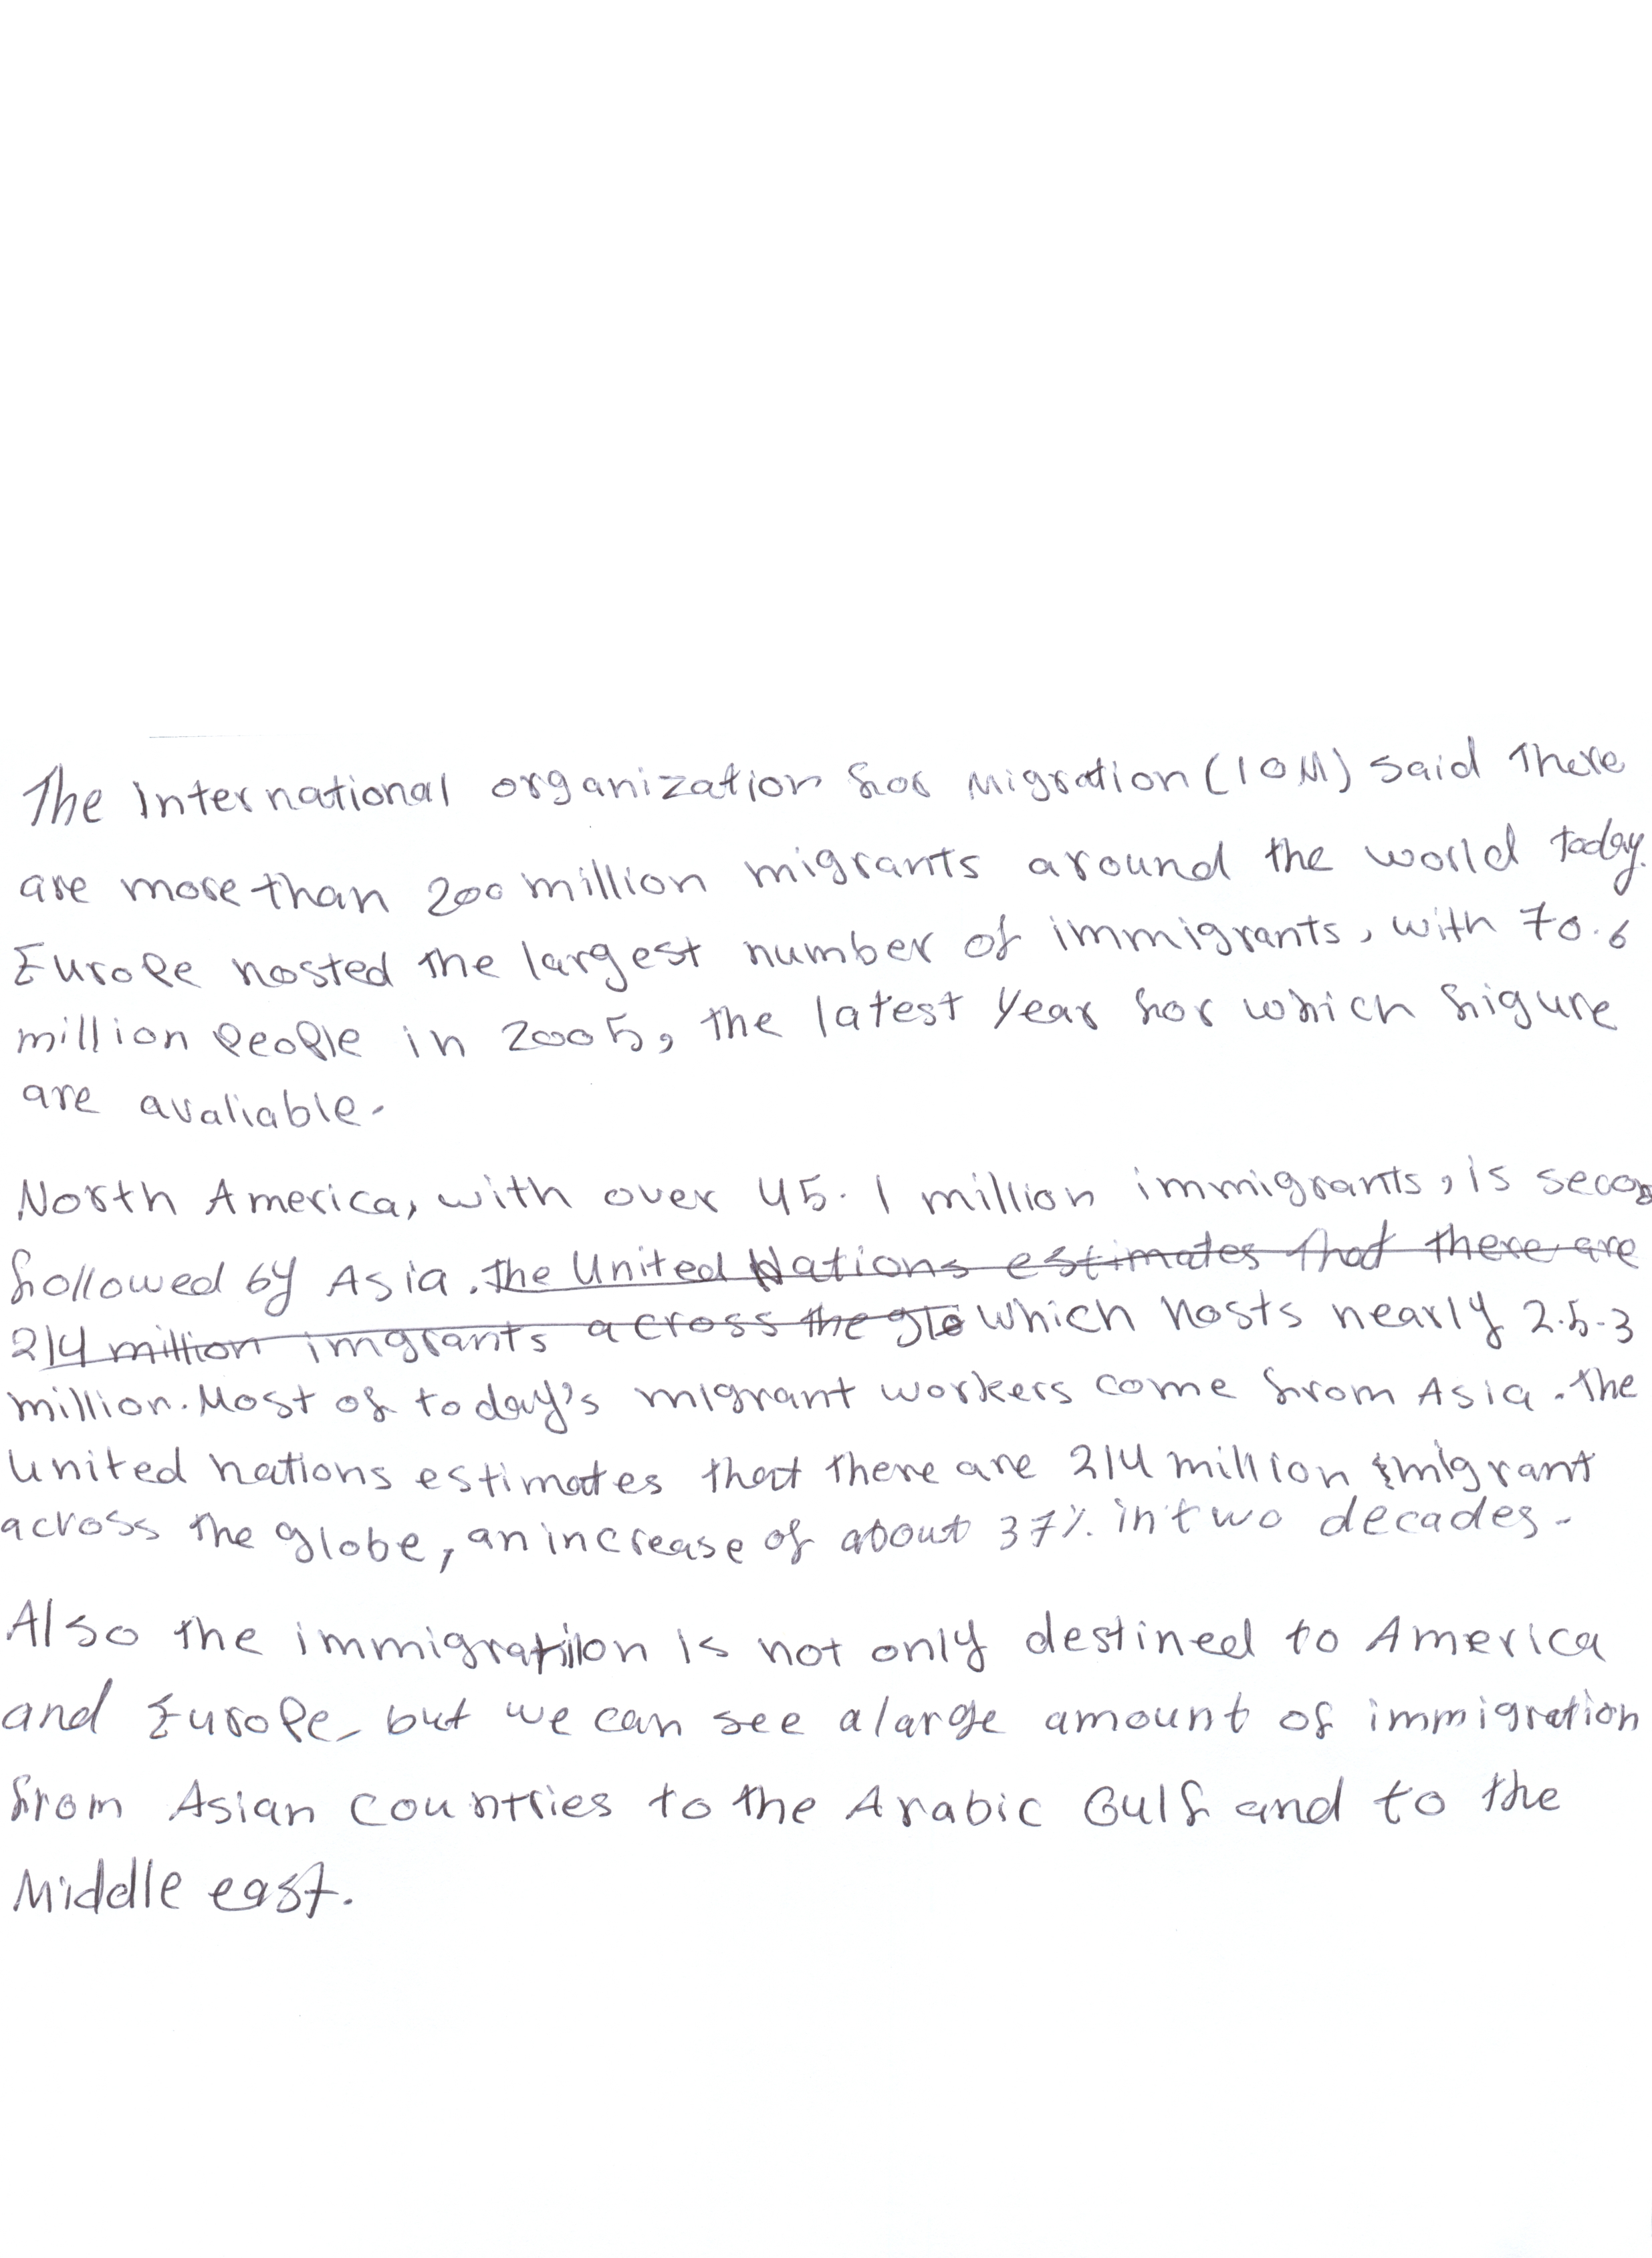 The International organization for Migration (IOM) said There
are more than 200 million migrants around the world today.
Europe hosted the largest number of immigrants, with 70.6
million people in 2005, the latest year for which figure
are avaliable.
North America, with over 45.1 million immigrants, is secon
followed by Asia. The United Nations estimates that there are
214 million imgrants across the glo which hosts nearly 2.5.3
million. Most of today's migrant workers come from Asia. The
United nations estimates that there are 214 million migrant
across the globe, an increase of about 37% in two decades.
Also the immigration is not only destined to America
and Europe, but we can see a large amount of immigration
from Asian countries to the Arabic Gulf and to the
Middle east.